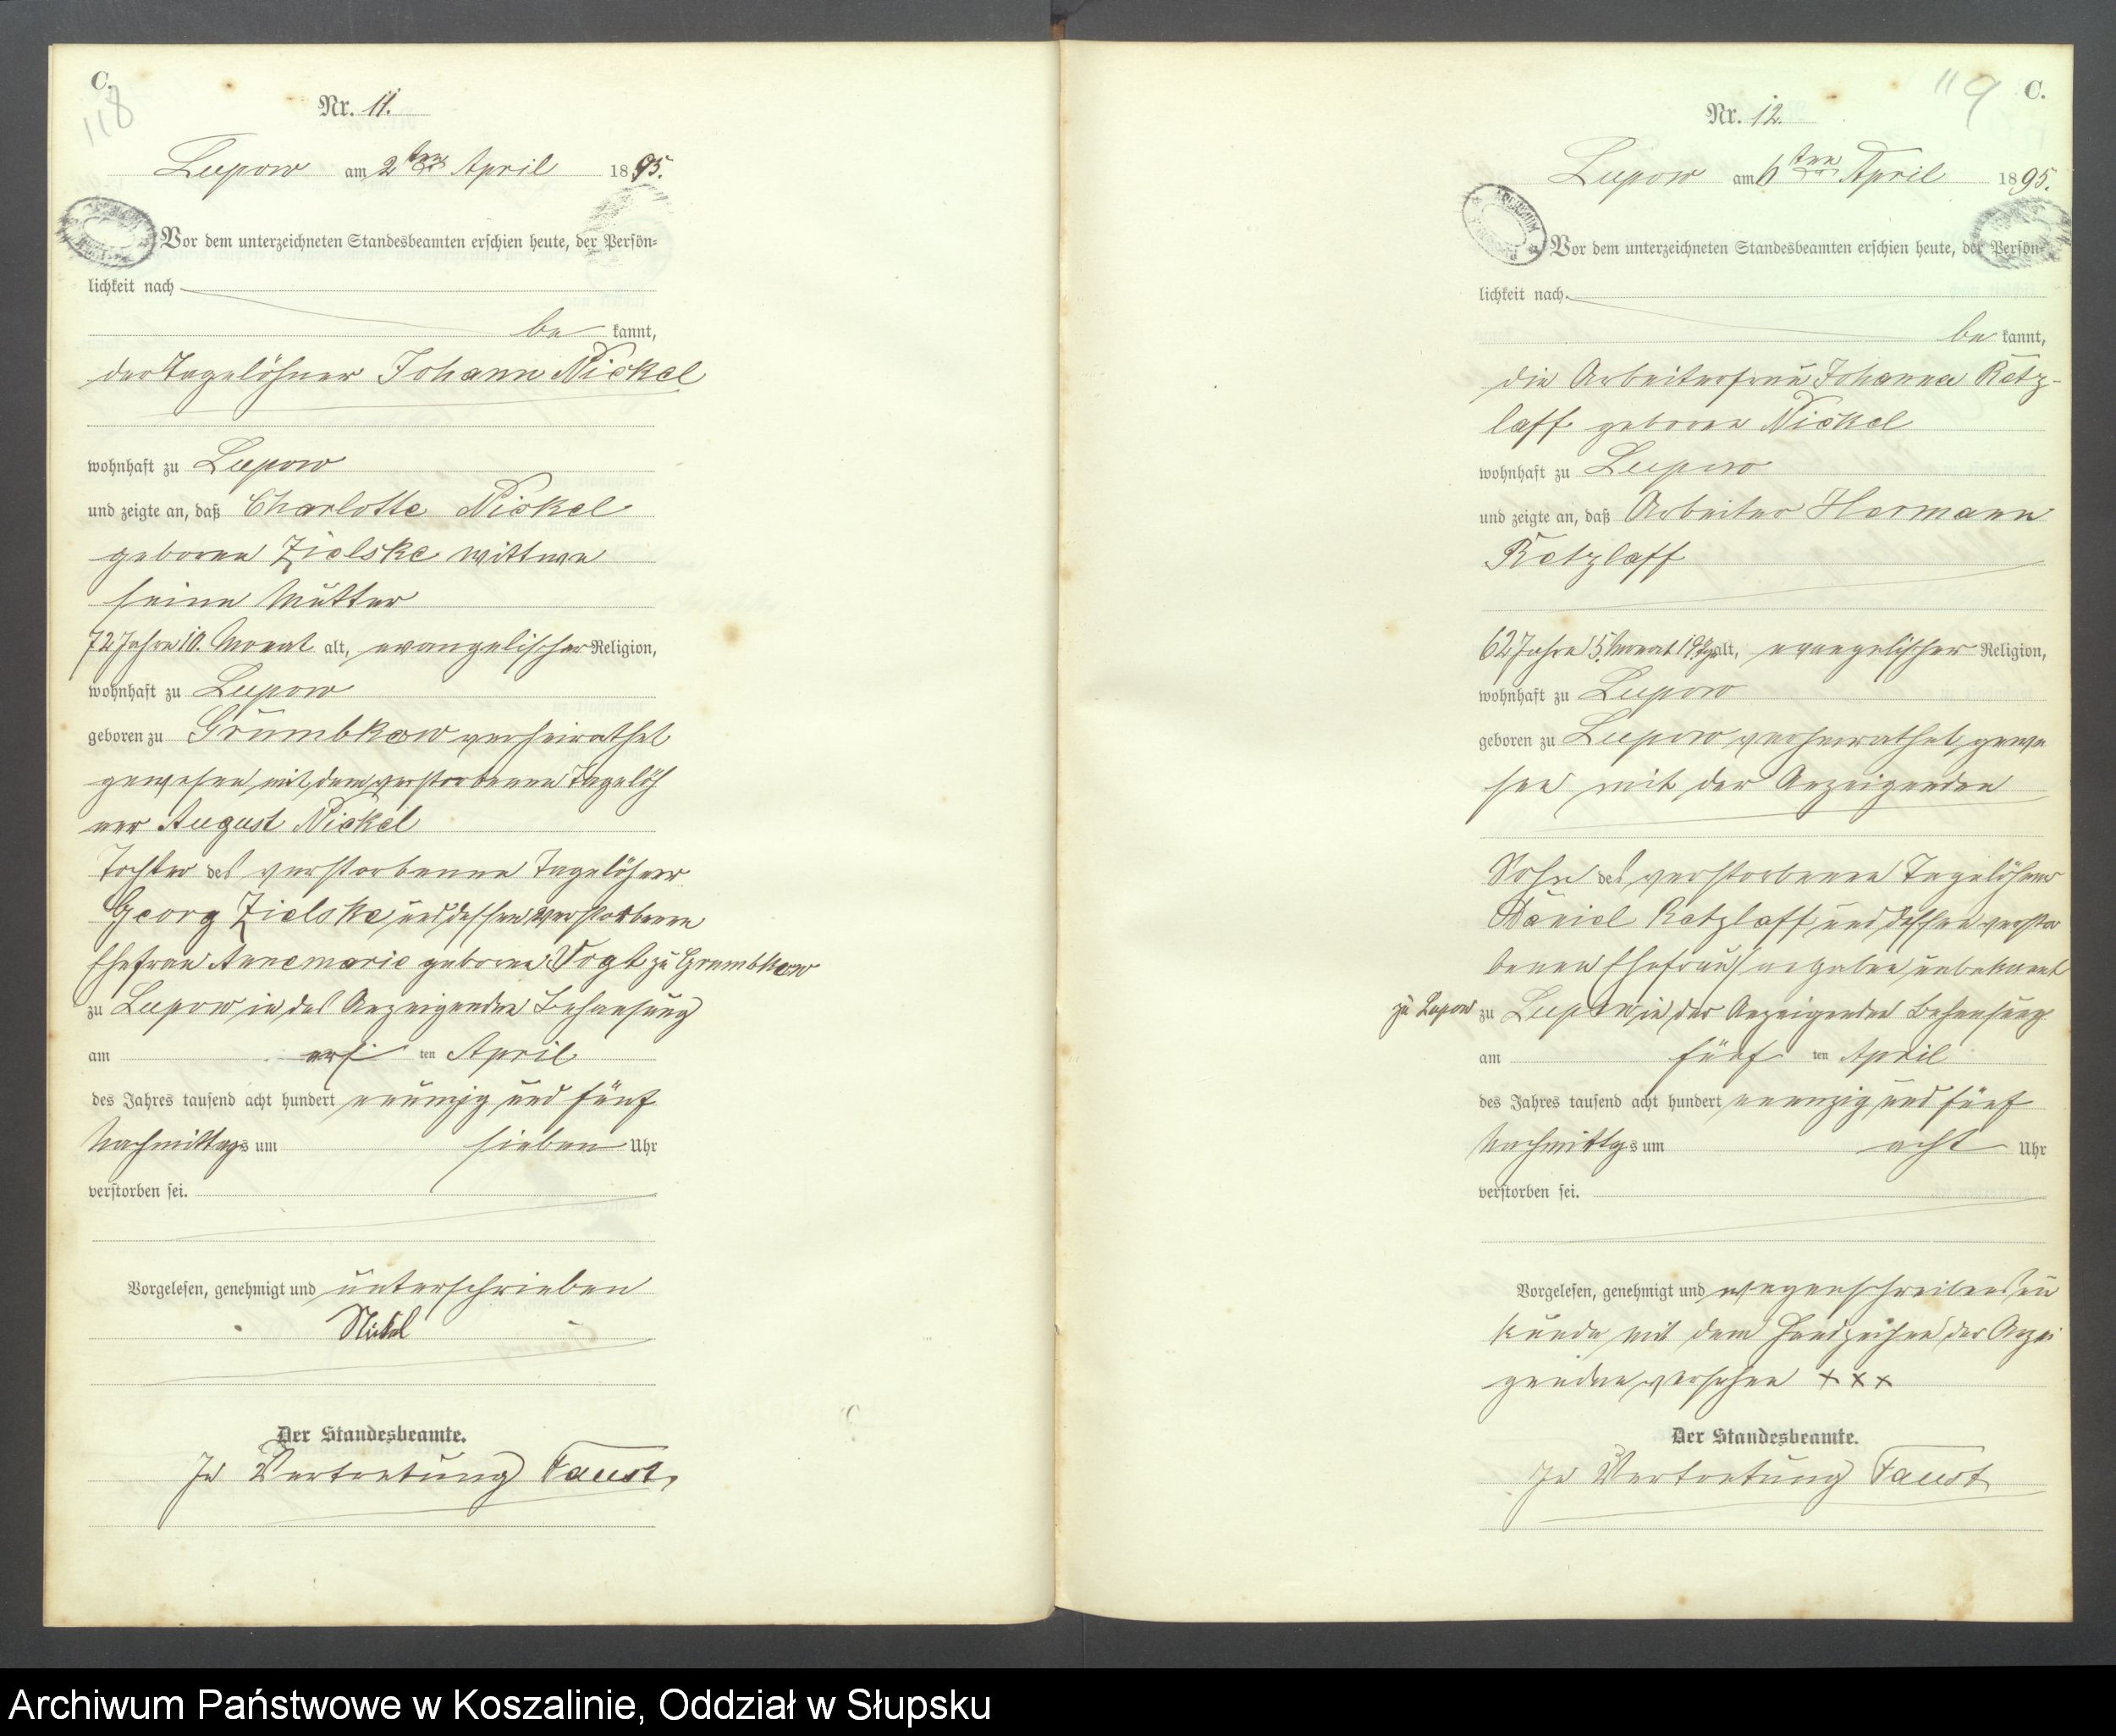 C.
118
Nr. 11.
Lupow am 2ten April 1895.
Vor dem unterzeichneten Standesbeamten erschien heute, der Persön=
lichkeit nach
be kannt,
der Tagelöhner Johann Nickel
wohnhaft zu Lupow
und zeigte an, daß Charlotte Nickel
geborne Zielske Wittwe
seine Mutter
72 Jahre 10. Monat alt, evangelischer Religion,
wohnhaft zu Lupow
geboren zu Grumbkow verheirathet
gewesen mit dem verstorbenen Tagelöh
ner August Nickel
Tochter des verstorbenen Tagelöhner
Georg Zielske und dessen verstorbenen
Ehefrau Annemarie geborne Vogt zu Grumbkow
zu Lupow in des Anzeigenden Behausung
am ersten April
des Jahres tausend acht hundert neunzig und fünf
Nachmittags um sieben Uhr
verstorben sei.
Vorgelesen, genehmigt und unterschrieben
Nickel
Der Standesbeamte.
In Vertretung Faust
119
C.
Nr. 12.
Lupow am 6ten April 1895.
Vor dem unterzeichneten Standesbeamten erschien heute, der Persön=
lichkeit nach
be kannt,
die Arbeiterfrau Johanna Retz-
laff geborne Nickel
wohnhaft zu Lupow
und zeigte an, daß Arbeiter Hermann
Retzlaff
62 Jahre 5. Monat 19. Tg alt, evangelischer Religion,
wohnhaft zu Lupow
geboren zu Lupow verheirathet gewe
sen mit der Anzeigenden
Sohn des verstorbenen Tagelöhner
Daniel Retzlaff und dessen verstor
benen Ehefrau angeben unbekannt
zu Lupow
zu Lupow in der Anzeigenden Behausung
am fünf ten April
des Jahres tausend acht hundert neunzig und fünf
Nachmittgs um acht Uhr
verstorben sei.
Vorgelesen, genehmigt und wegen schreibens un
kunde mit dem Handzeichen der Anzei
genden versehen xxx
Der Standesbeamte.
In Vertretung Faust
Archiwum Państwowe w Koszalinie, Oddział w Słupsku